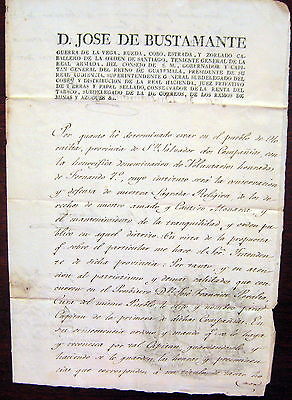 D. JOSE DE BUSTAMANTE
GUERRA DE LA VEGA, RUEDA, COBO, ESTRADA, Y ZORLADO CA-
BALLERO DE LA ORDEN DE SANTIAGO, TENIENTE GENERAL DE LA
REAL ARMADA, DEL CONSEJO DE S. M., GOBERNADOR Y CAPI-
TAN GENERAL DEL REINO DE GUATEMALA, PRESIDENTE DE SU
REAL AUDIENCIA, SUPERINTENDENTE GENERAL SUBDELEGADO DEL
COBRO Y DISTRIBUCION DE LA REAL HACIENDA, JUEZ PRIVATIVO
DE TIERRAS Y PAPEL SELLADO, CONSERVADOR DE LA RENTA DE
TABACO, SUBDELEGADO DE LA DE CORREOS, DE LOS RAMOS DE
MINAS Y AZOGUES &c.
Por quanto hé determinado crear en el pueblo de
provincia de Sn. Salvador dos Compañias, con
la honorifica denominacion de Voluntarios honrados
de Fernando 7º., cuyo instituto será la conservacion
y defensa de nuestra Sagrada Religion, de los de-
rechos de nuestro amado y Cautivo Monarca y
el mantenimiento de la tranquilidad, y orden pu-
blico en aquel distrito: En vista de la propuesta
qe. sobre el particular me hace el Sor. Intenden-
te de dicha provincia: Por tanto, y en atencion
al patriotismo y demas calidades que con-
curren en el Presbitero Dn. José Francisco
Cura del mismo Pueblo le elijo y nombro para
Capitan de la primera de dichas Compañias. En
su consecuencia ordeno y mando se le haya
y reconozca por tal Capitan, guardandosele y
haciendo se le guarden las honras y preeminen-
cias que corresponden